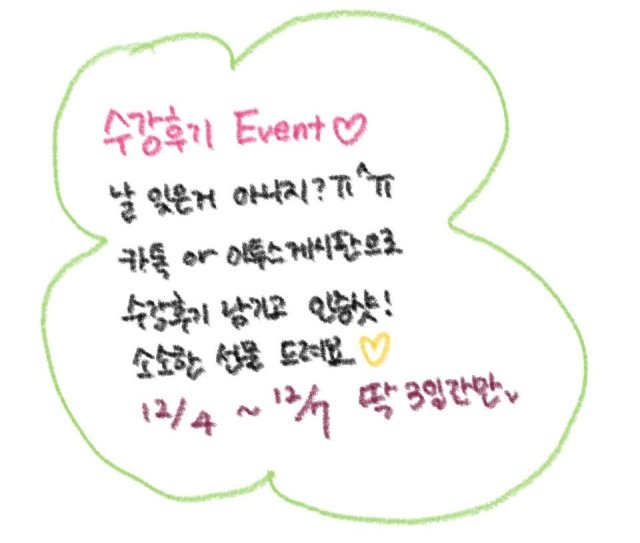 수강후기 Event♡
날 잊은거 아니지? ㅠ^ㅠ
카톡 or 이투스게시판으로
수강후기 남기고 인증샷!
소소한 선물 드려요♡
12/4 ~ 12/7 딱 3일간만